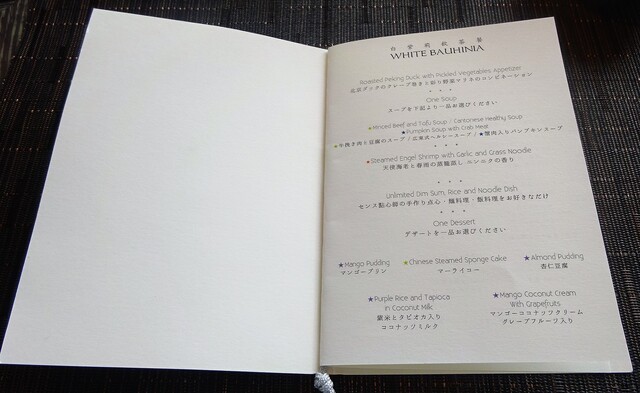 白紫荊飲茶餐
WHITE BAUHINIA
Roasted Peking Duck with Pickled Vegetables Appetizer
北京ダックのクレープ巻きと彩り野菜マリネのコンビネーション
One Soup
スープを下記より一品お選びください
★Minced Beef and Tofu Soup / Cantonese Healthy Soup
★Pumpkin Soup with Crab Meat
★牛挽き肉と豆腐のスープ / 広東式ヘルシースープ / ★蟹肉入りパンプキンスープ
★Steamed Engel Shrimp with Garlic and Grass Noodle
天使海老と春雨の蒸籠蒸し ニンニクの香り
Unlimited Dim Sum, Rice and Noodle Dish
センス點心師の手作り点心・麺料理・飯料理をお好きなだけ
One Dessert
デザートを一品お選びください
★Mango Pudding ★Chinese Steamed Sponge Cake ★Almond Pudding
マンゴープリン マーライコー 杏仁豆腐
★Purple Rice and Tapioca ★Mango Coconut Cream
in Coconut Milk With Grapefruits
紫米とタピオカ入り マンゴーココナッツクリーム
ココナッツミルク グレープフルーツ入り